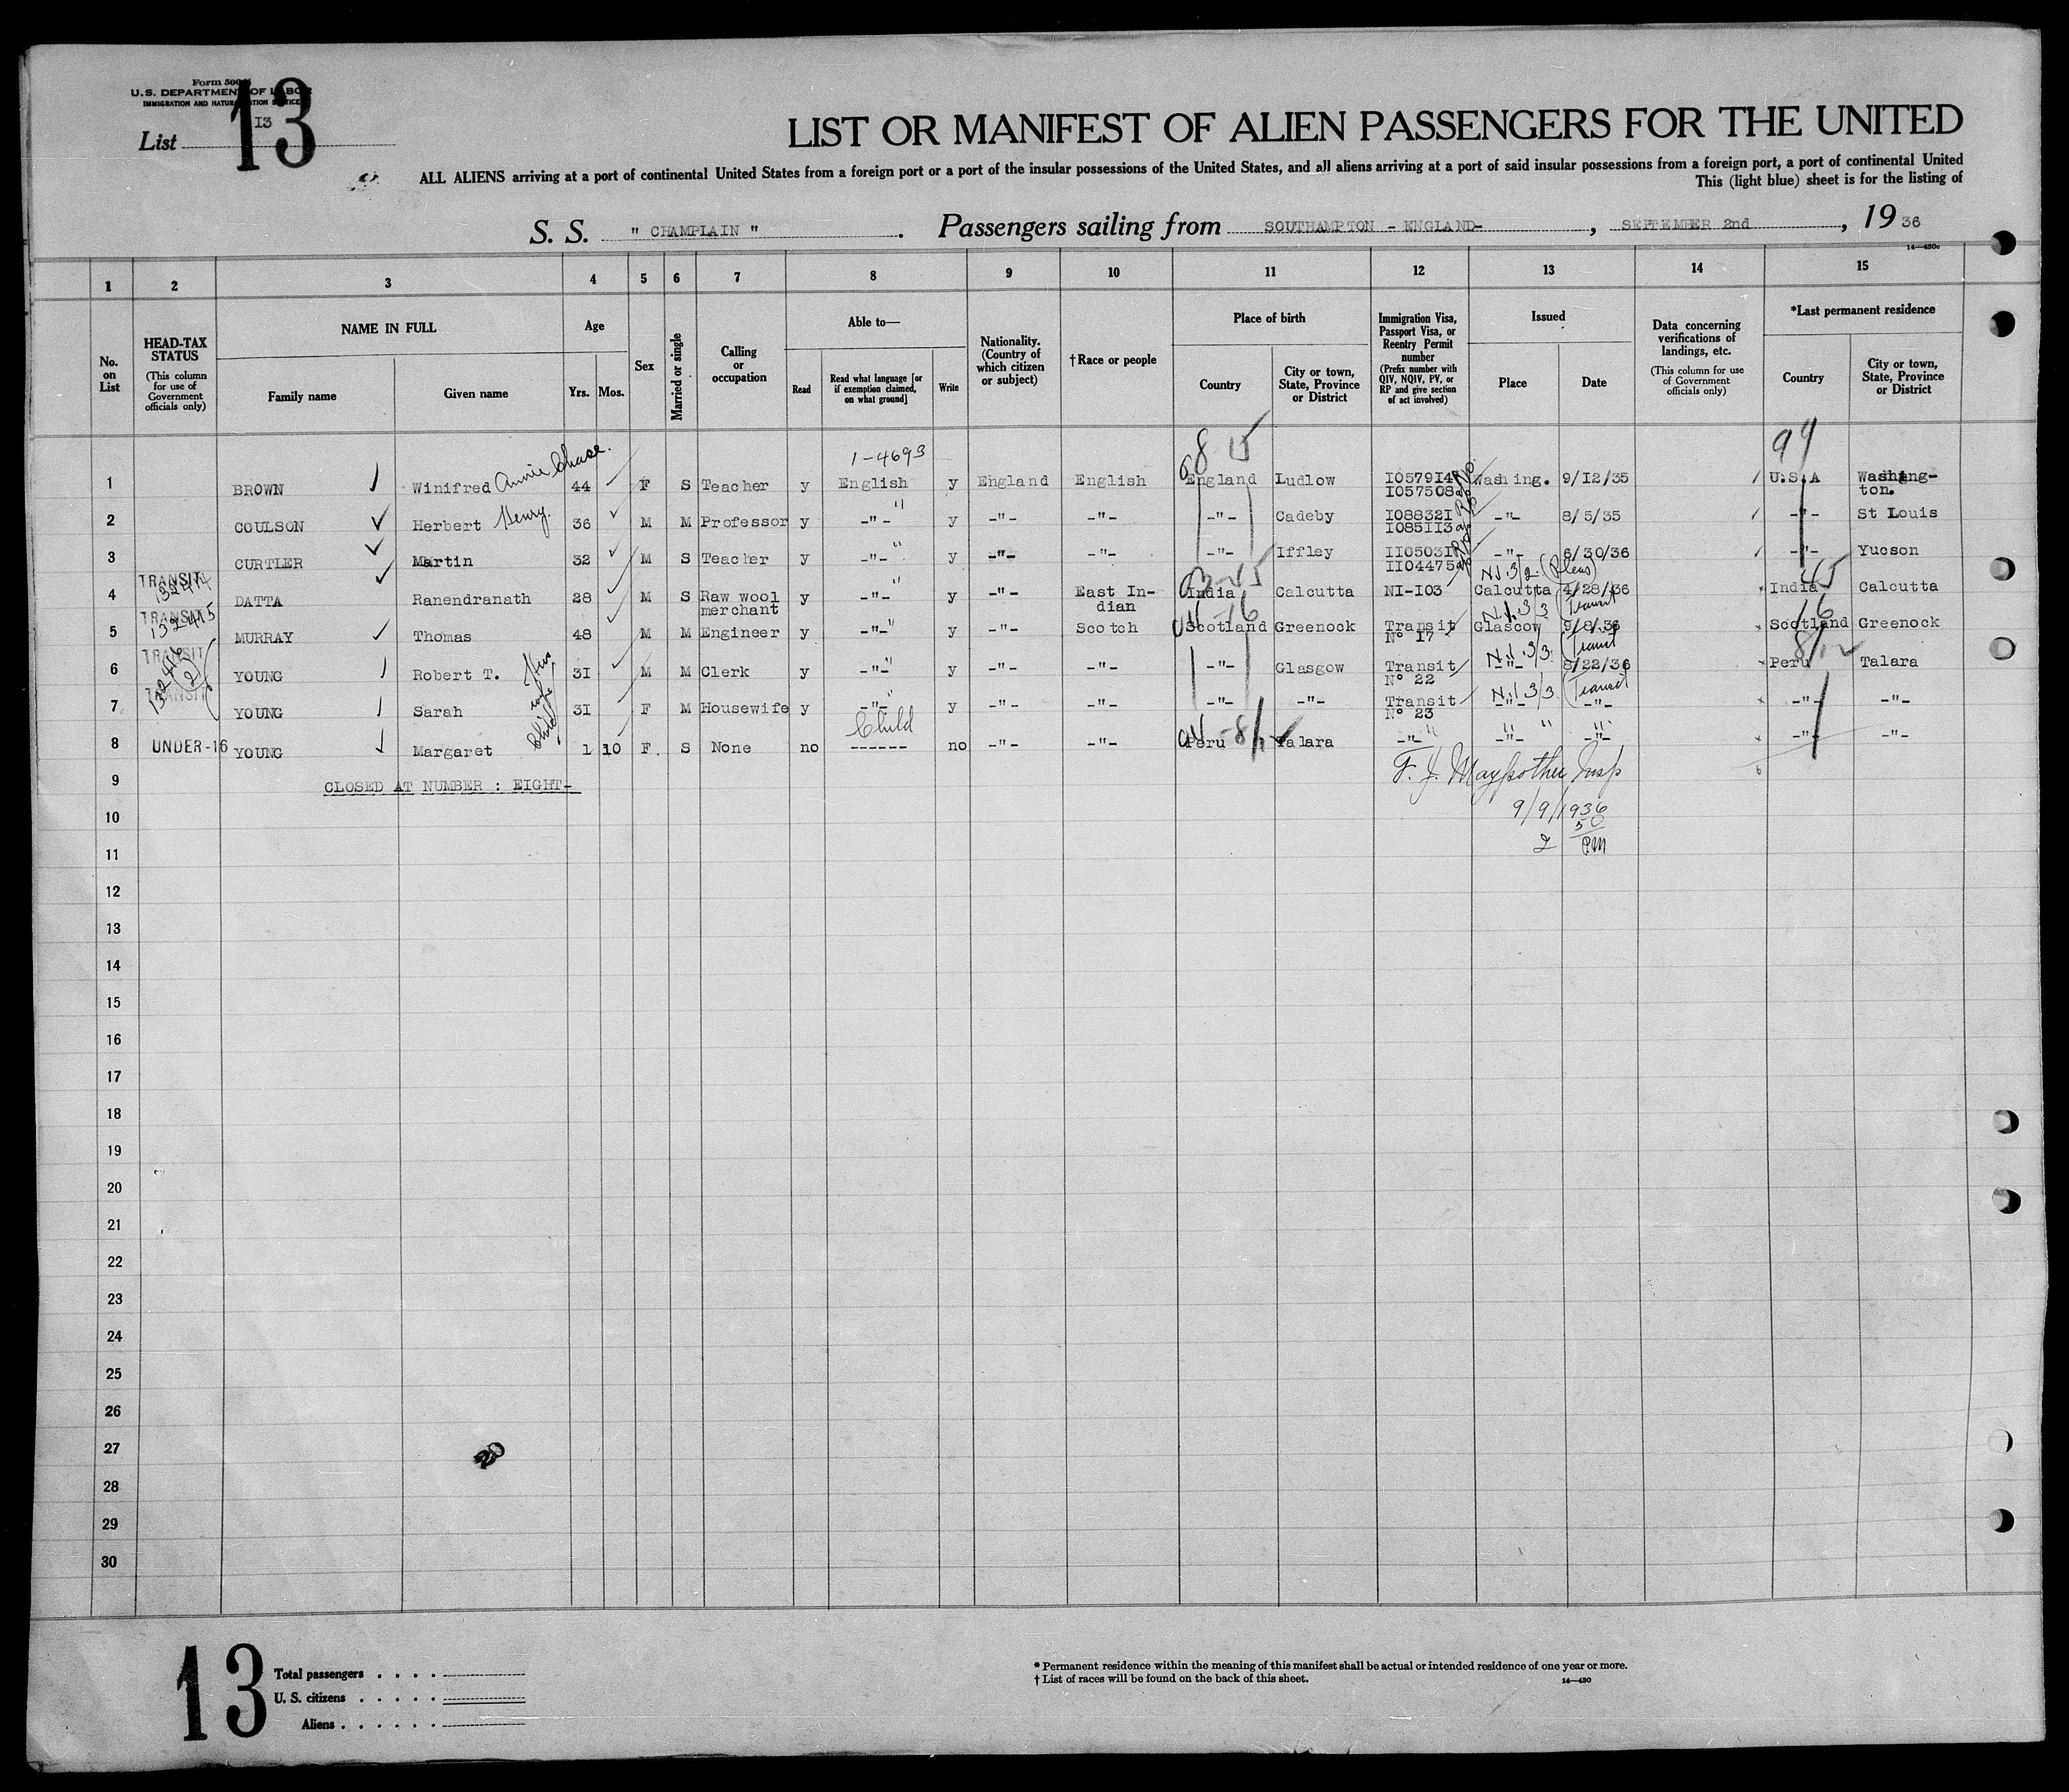 Form 500
U.S. DEPARTMENT OF LABOR
IMMIGRATION AND NATURALIZATION SERVICE
List 13
13
LIST OR MANIFEST OF ALIEN PASSENGERS FOR THE UNITED
ALL ALIENS arriving at a port of continental United States from a foreign port or a port of the insular possessions of the United States, and all aliens arriving at a port of said insular possessions from a foreign port, a port of continental United
This (light blue) sheet is for the listing of
S. S. " CHAMPLAIN ". Passengers sailing from SOUTHAMPTON - ENGLAND-, SEPTEMBER 2nd, 19 36
14—430c
1 2 3 4 5 6 7 8 9 10 11 12 13 14 15
No. on List
HEAD-TAX STATUS (This column for use of Government officials only)
NAME IN FULL
Family name
Given name
Age
Yrs. Mos.
Sex
Married or single
Calling or occupation
Able to—
Read
Read what language [or if exemption claimed, on what ground]
Write
Nationality. (Country of which citizen or subject)
†Race or people
Place of birth
Country
City or town, State, Province or District
Immigration Visa, Passport Visa, or Reentry Permit number (Prefix number with QIV, NQIV, PV, or RP and give section of act involved)
Issued
Place
Date
Data concerning verifications of landings, etc. (This column for use of Government officials only)
*Last permanent residence
Country
City or town, State, Province or District
1-4693 8 15 99
1 BROWN Winifred Annie Chase. 44 F S Teacher y English y England English England Ludlow I057914 I057508 Washing. 9/12/35 U.S.A Washington.
2 COULSON Herbert Henry. 36 M M Professor y -"- y -"- -"- -"- Cadeby I088321 I085113 -"- 8/5/35 -"- St Louis
3 CURTLER Martin 32 M S Teacher y -"- y -"- -"- -"- Iffley II05031 II04475 -"- 6/30/36 -"- Yucson
4 TRANSIT DATTA Ranendranath 28 M S Raw wool merchant y -"- y -"- East Indian India Calcutta NI-I03 N.I.3/2. (Pleas) Calcutta 4/28/36 India Calcutta
5 TRANSIT 132415 MURRAY Thomas 48 M M Engineer y -"- y -"- Scotch Scotland Greenock Transit N° 17 - N.I.33 (Transit Glascow 9/8/36 Scotland Greenock
6 TRANSIT 132416 (2) YOUNG Robert T. 31 M M Clerk y -"- y -"- -"- -"- Glasgow Transit N° 22 N.I.3/3. (Transit -"- 8/22/36 Peru Talara
7 TRANSIT YOUNG Sarah wife 31 F M Housewife y -"- y -"- -"- -"- -"- Transit N° 23 N.I.3/3 (Transit -"- -"- -"- -"-
8 UNDER-16 YOUNG Margaret Child 1 10 F. S None no Child ------ no -"- -"- Peru Talara -"- -"- -"- -"- -"-
9 CLOSED AT NUMBER : EIGHT-
F. J. Maypother Insp
9/9/1936
2 50 PM
10
11
12
13
14
15
16
17
18
19
20
21
22
23
24
25
26
27
28
29
30
20
13
Total passengers . . . .
U. S. citizens . . . . .
Aliens . . . . . .
* Permanent residence within the meaning of this manifest shall be actual or intended residence of one year or more.
† List of races will be found on the back of this sheet.
14—430